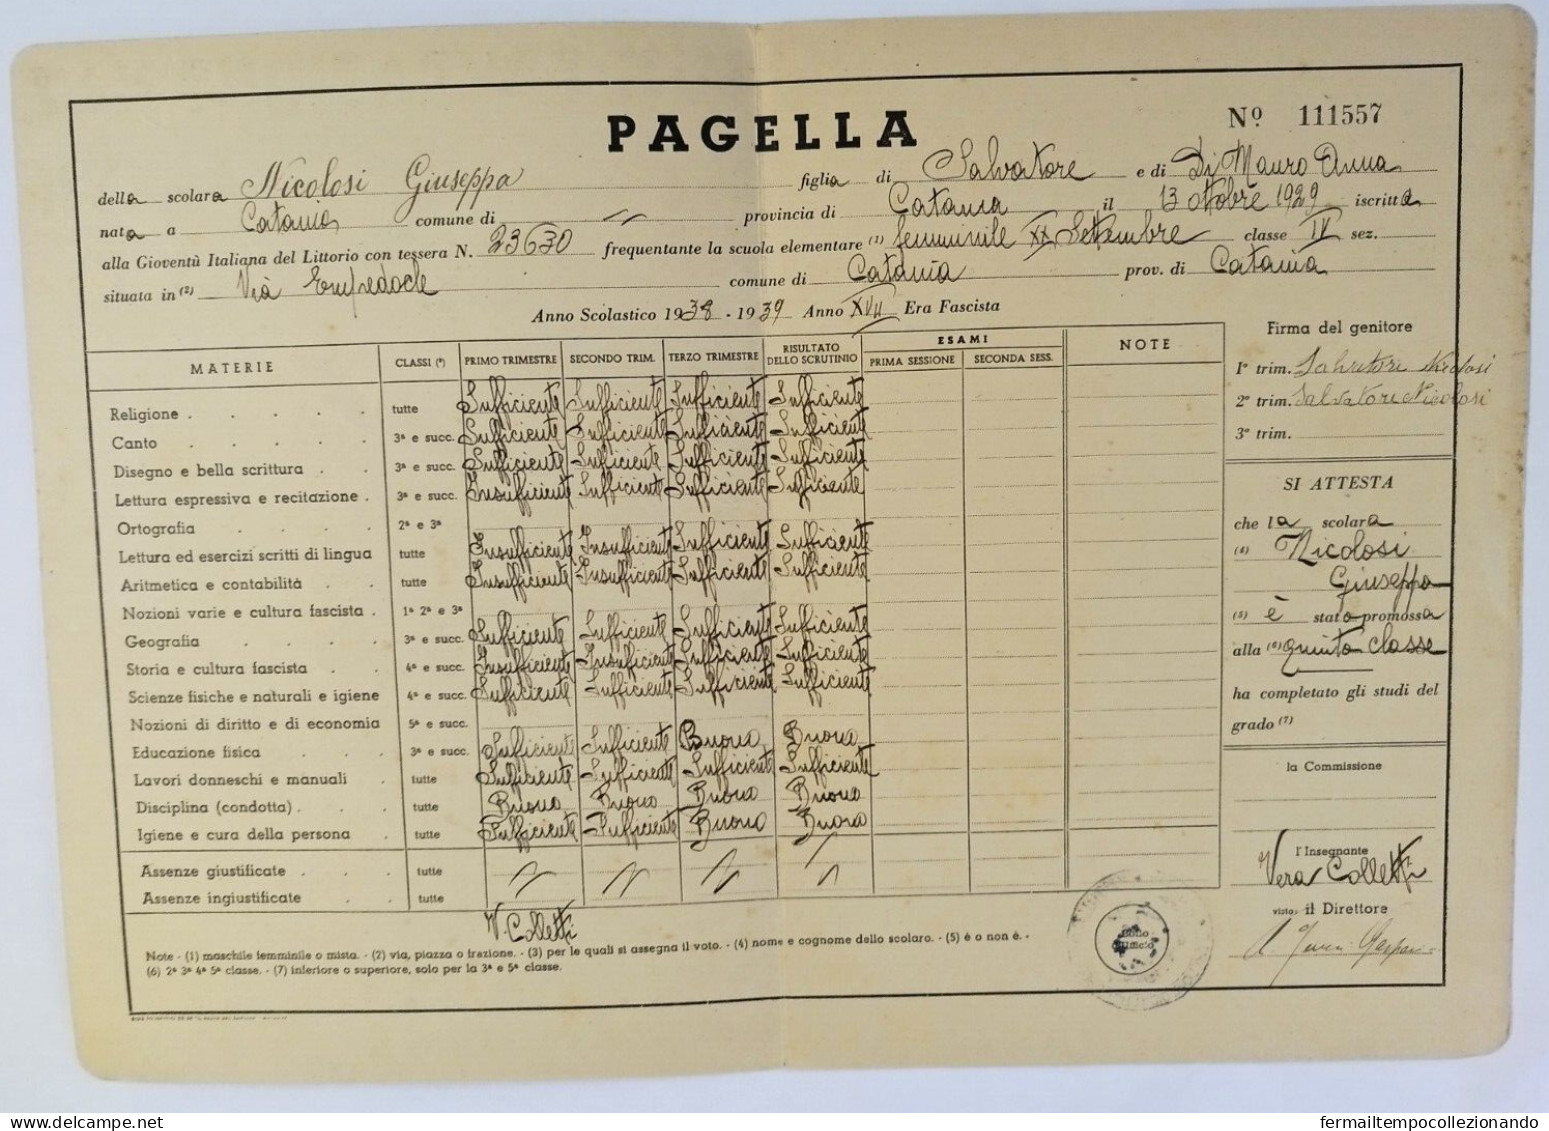 PAGELLA
Nº 111557
della scolara Nicolosi Giuseppa figlia di Salvatore e di Di Mauro Anna
nata a Catania comune di // provincia di Catania il 13 ottobre 1929 iscritta
alla Gioventù Italiana del Littorio con tessera N. 23630 frequentante la scuola elementare (1) femminile XX Settembre classe IV sez.
situata in (2) Via Empedocle comune di Catania prov. di Catania
Anno Scolastico 1938 - 1939 Anno XVII Era Fascista
MATERIE CLASSI (*) PRIMO TRIMESTRE SECONDO TRIM. TERZO TRIMESTRE RISULTATO DELLO SCRUTINIO ESAMI PRIMA SESSIONE SECONDA SESS. NOTE
Religione tutte Sufficiente Sufficiente Sufficiente Sufficiente
Canto 3ª e succ. Sufficiente Sufficiente Sufficiente Sufficiente
Disegno e bella scrittura 3ª e succ. Sufficiente Sufficiente Sufficiente Sufficiente
Lettura espressiva e recitazione 3ª e succ. Insufficiente Sufficiente Sufficiente Sufficiente
Ortografia 2ª e 3ª
Lettura ed esercizi scritti di lingua tutte Insufficiente Insufficiente Sufficiente Sufficiente
Aritmetica e contabilità tutte Insufficiente Insufficiente Sufficiente Sufficiente
Nozioni varie e cultura fascista 1ª 2ª e 3ª
Geografia 3ª e succ. Sufficiente Sufficiente Sufficiente Sufficiente
Storia e cultura fascista 4ª e succ. Insufficiente Insufficiente Sufficiente Sufficiente
Scienze fisiche e naturali e igiene 4ª e succ. Sufficiente Sufficiente Sufficiente Sufficiente
Nozioni di diritto e di economia 5ª e succ.
Educazione fisica 3ª e succ. Sufficiente Sufficiente Buona Buona
Lavori donneschi e manuali tutte Sufficiente Sufficiente Sufficiente Sufficiente
Disciplina (condotta) tutte Buona Buona Buona Buona
Igiene e cura della persona tutte Sufficiente Sufficiente Buona Buona
Assenze giustificate tutte // // // //
Assenze ingiustificate tutte
V. Colletti
Note - (1) maschile femminile o mista. - (2) via, piazza o frazione. - (3) per le quali si assegna il voto. - (4) nome e cognome dello scolaro. - (5) è o non è. -
(6) 2ª 3ª 4ª 5ª classe. - (7) inferiore o superiore, solo per la 3ª e 5ª classe.
Firma del genitore
1º trim. Salvatore Nicolosi
2º trim. Salvatore Nicolosi
3º trim.
SI ATTESTA
che la scolara
(4) Nicolosi
Giuseppa
(5) è stata promossa
alla (6) quinta classe
ha completato gli studi del
grado (7)
la Commissione
l'Insegnante
Vera Colletti
visto: il Direttore
Bollo
d'Ufficio
fermailtempocollezionando